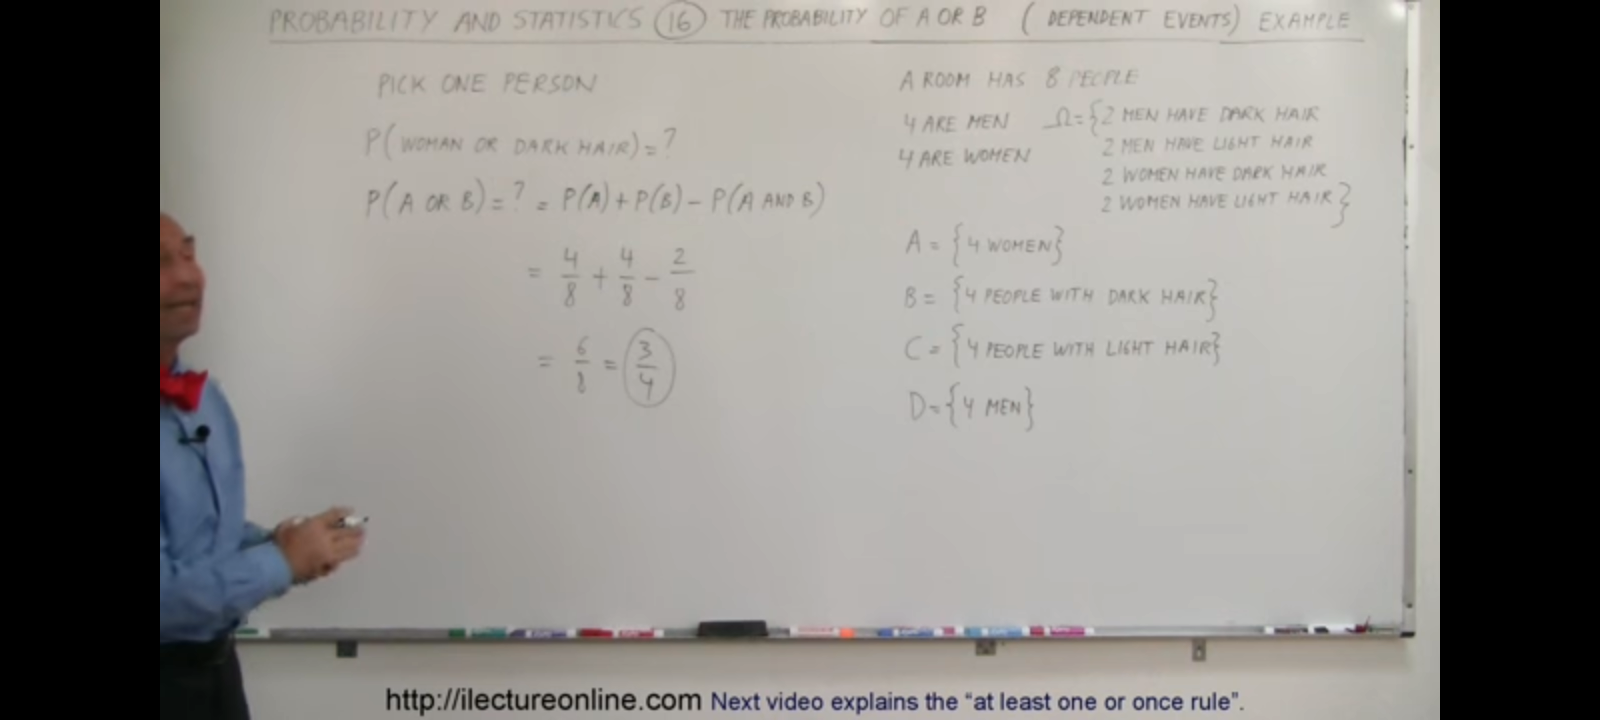 PROBABILITY AND STATISTICS 16 THE PROBABILITY OF A OR B (DEPENDENT EVENTS) EXAMPLE
PICK ONE PERSON
P(WOMAN OR DARK HAIR) = ?
P(A OR B) = ? = P(A) + P(B) - P(A AND B)
= 4/8 + 4/8 - 2/8
= 6/8 = 3/4
A ROOM HAS 8 PEOPLE
4 ARE MEN Ω = {2 MEN HAVE DARK HAIR
4 ARE WOMEN 2 MEN HAVE LIGHT HAIR
2 WOMEN HAVE DARK HAIR
2 WOMEN HAVE LIGHT HAIR}
A = {4 WOMEN}
B = {4 PEOPLE WITH DARK HAIR}
C = {4 PEOPLE WITH LIGHT HAIR}
D = {4 MEN}
http://ilectureonline.com Next video explains the “at least one or once rule”.